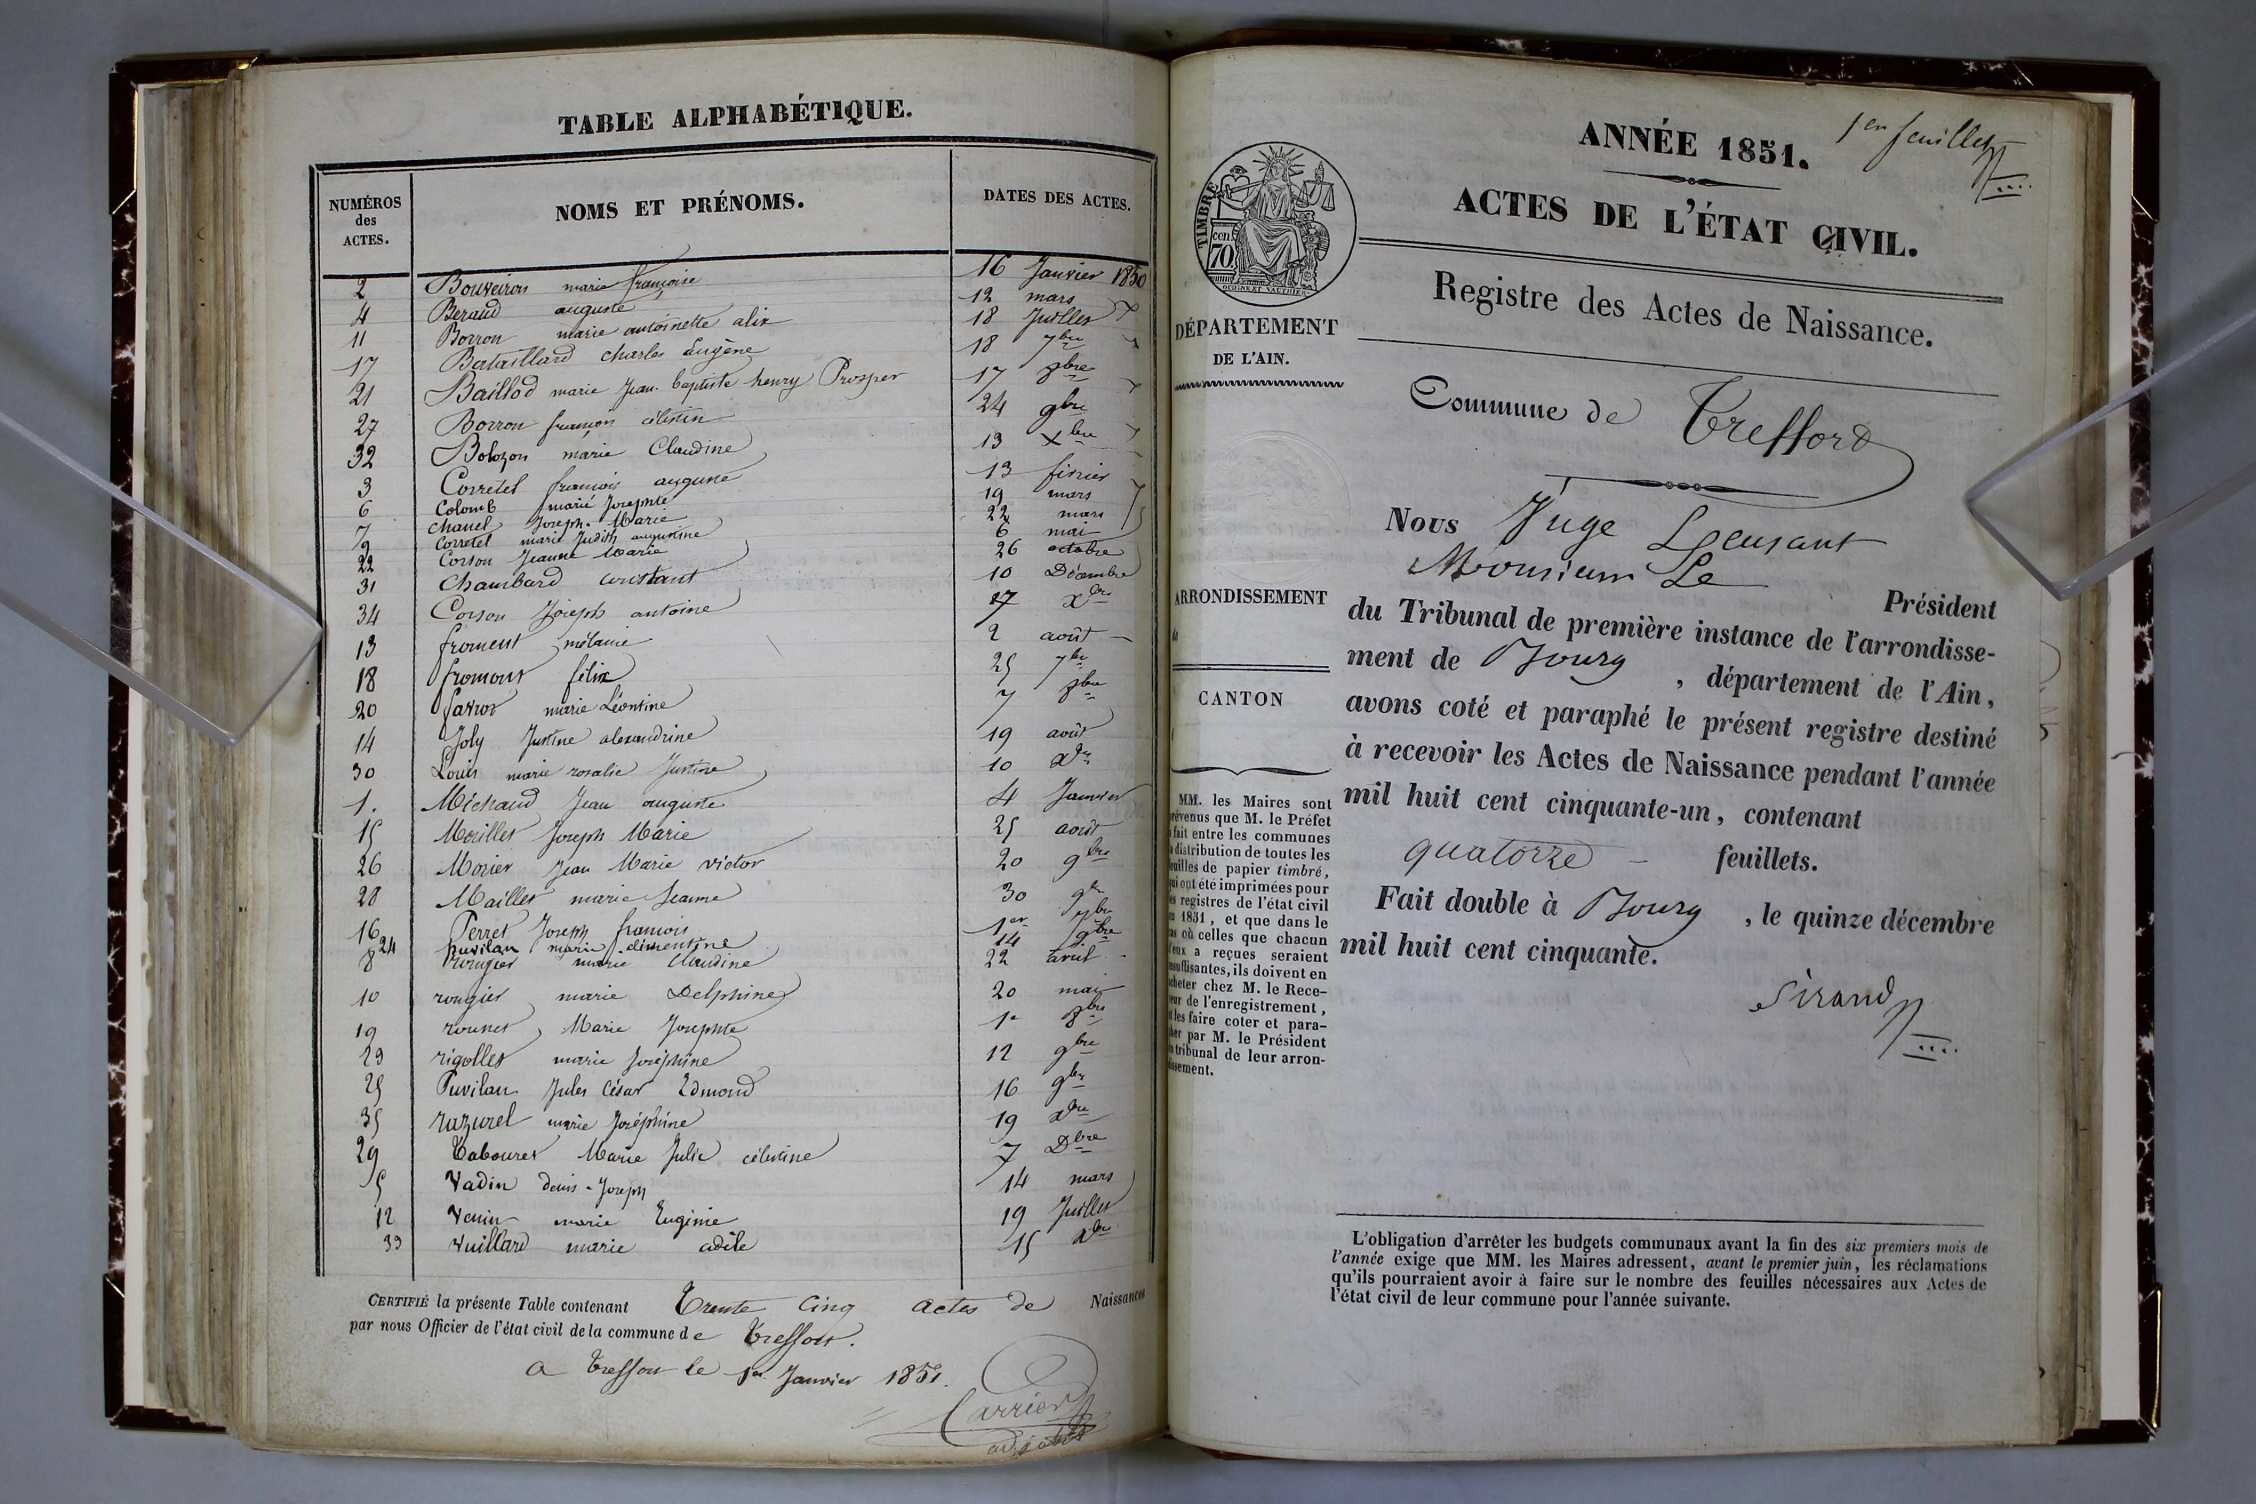 TABLE ALPHABÉTIQUE.
NUMÉROS des ACTES. NOMS ET PRÉNOMS. DATES DES ACTES.
2 Bouveiron marie françoise 16 Janvier 1850
4 Beraud auguste 12 mars
11 Borron marie antoinette alix 18 Juillet
17 Bataillard charles Eugène 18 7bre
21 Baillod marie Jean-baptiste henry Prosper 17 8bre
27 Borron françois célestin 24 9bre
32 Bolozon marie Claudine 13 Xbre
3 Corretel françois auguste 13 février
6 Colomb marie Josephte 19 mars
7 Chanel Joseph-Marie 22 mars
9 Corretel marie Judith augustine 6 mai
22 Corson Jeanne Marie 26 octobre
31 Chambard constant 10 Décembre
34 Corson Joseph antoine 17 xbre
13 froment mélanie 2 août
18 fromont félix 25 7bre
20 favror marie Léontine 7 8bre
14 Joly Justine alexandrine 19 août
30 Louis marie rosalie Justine 10 xbre
1. Michaud Jean auguste 4 Janvier
15 Morillet Joseph Marie 25 août
26 Morier Jean Marie victor 20 9bre
28 Maillet marie Jeanne 30 9bre
16 Perret Joseph françois 1er 7bre
24 puvilan marie clémentine 14 9bre
8 rougier marie Claudine 22 avril
10 rougier marie Delphine 20 mai
19 Marie Josephte 1er 8bre
23 rigollet marie Joséphine 12 9bre
25 Puvilan Jules César Edmond 16 9bre
35 razurel marie Joséphine 19 xbre
29 Tabouret Marie Julie célestine 7 Dbre
5 Vadin denis-Joseph 14 mars
12 Venin marie Eugénie 19 Juillet
33 Vuillard marie adèle 15 xbre
CERTIFIÉ la présente Table contenant Trente Cinq actes de Naissances
par nous Officier de l'état civil de la commune de Treffort.
a Treffort le 1er Janvier 1851.
Carrier
adjoint
1er feuillet
ANNÉE 1851.
ACTES DE L'ÉTAT CIVIL.
Registre des Actes de Naissance.
TIMBRE
cen
70
DÉPARTEMENT
DE L'AIN.
Commune de Treffort
Nous Juge
Monsieur Le Président
du Tribunal de première instance de l'arrondisse-
ment de Bourg, département de l'Ain,
avons coté et paraphé le présent registre destiné
à recevoir les Actes de Naissance pendant l'année
mil huit cent cinquante-un, contenant
quatorze feuillets.
Fait double à Bourg, le quinze décembre
mil huit cent cinquante.
Sirand
ARRONDISSEMENT
CANTON
MM. les Maires sont
prévenus que M. le Préfet
a fait entre les communes
la distribution de toutes les
feuilles de papier timbré,
qui ont été imprimées pour
les registres de l'état civil
1851, et que dans le
cas où celles que chacun
d'eux a reçues seraient
insuffisantes, ils doivent en
acheter chez M. le Rece-
veur de l'enregistrement,
et les faire coter et para-
pher par M. le Président
du tribunal de leur arron-
dissement.
L'obligation d'arrêter les budgets communaux avant la fin des six premiers mois de
l'année exige que MM. les Maires adressent, avant le premier juin, les réclamations
qu'ils pourraient avoir à faire sur le nombre des feuilles nécessaires aux Actes de
l'état civil de leur commune pour l'année suivante.